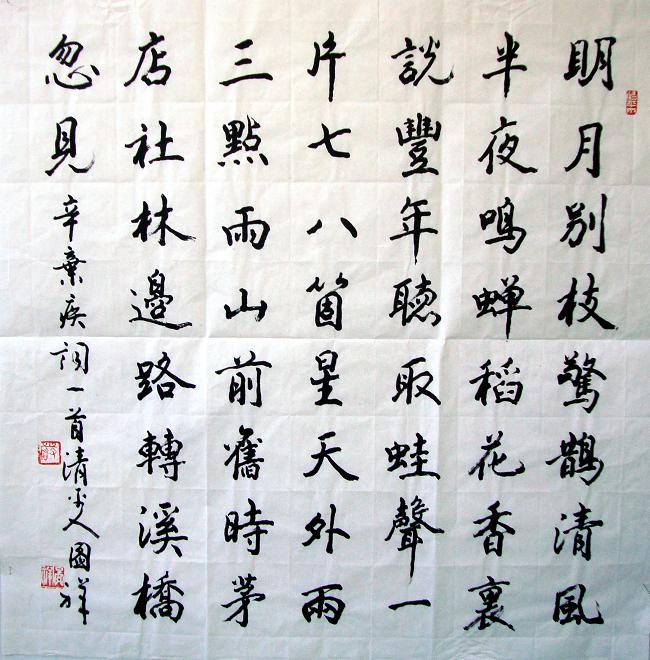 明月别枝驚鵲清風
半夜鳴蟬稻花香裏
說豐年聽取蛙聲一
片七八箇星天外兩
三點雨山前舊時茅
店社林邊路轉溪橋
忽見 辛棄疾詞一首清人國祥